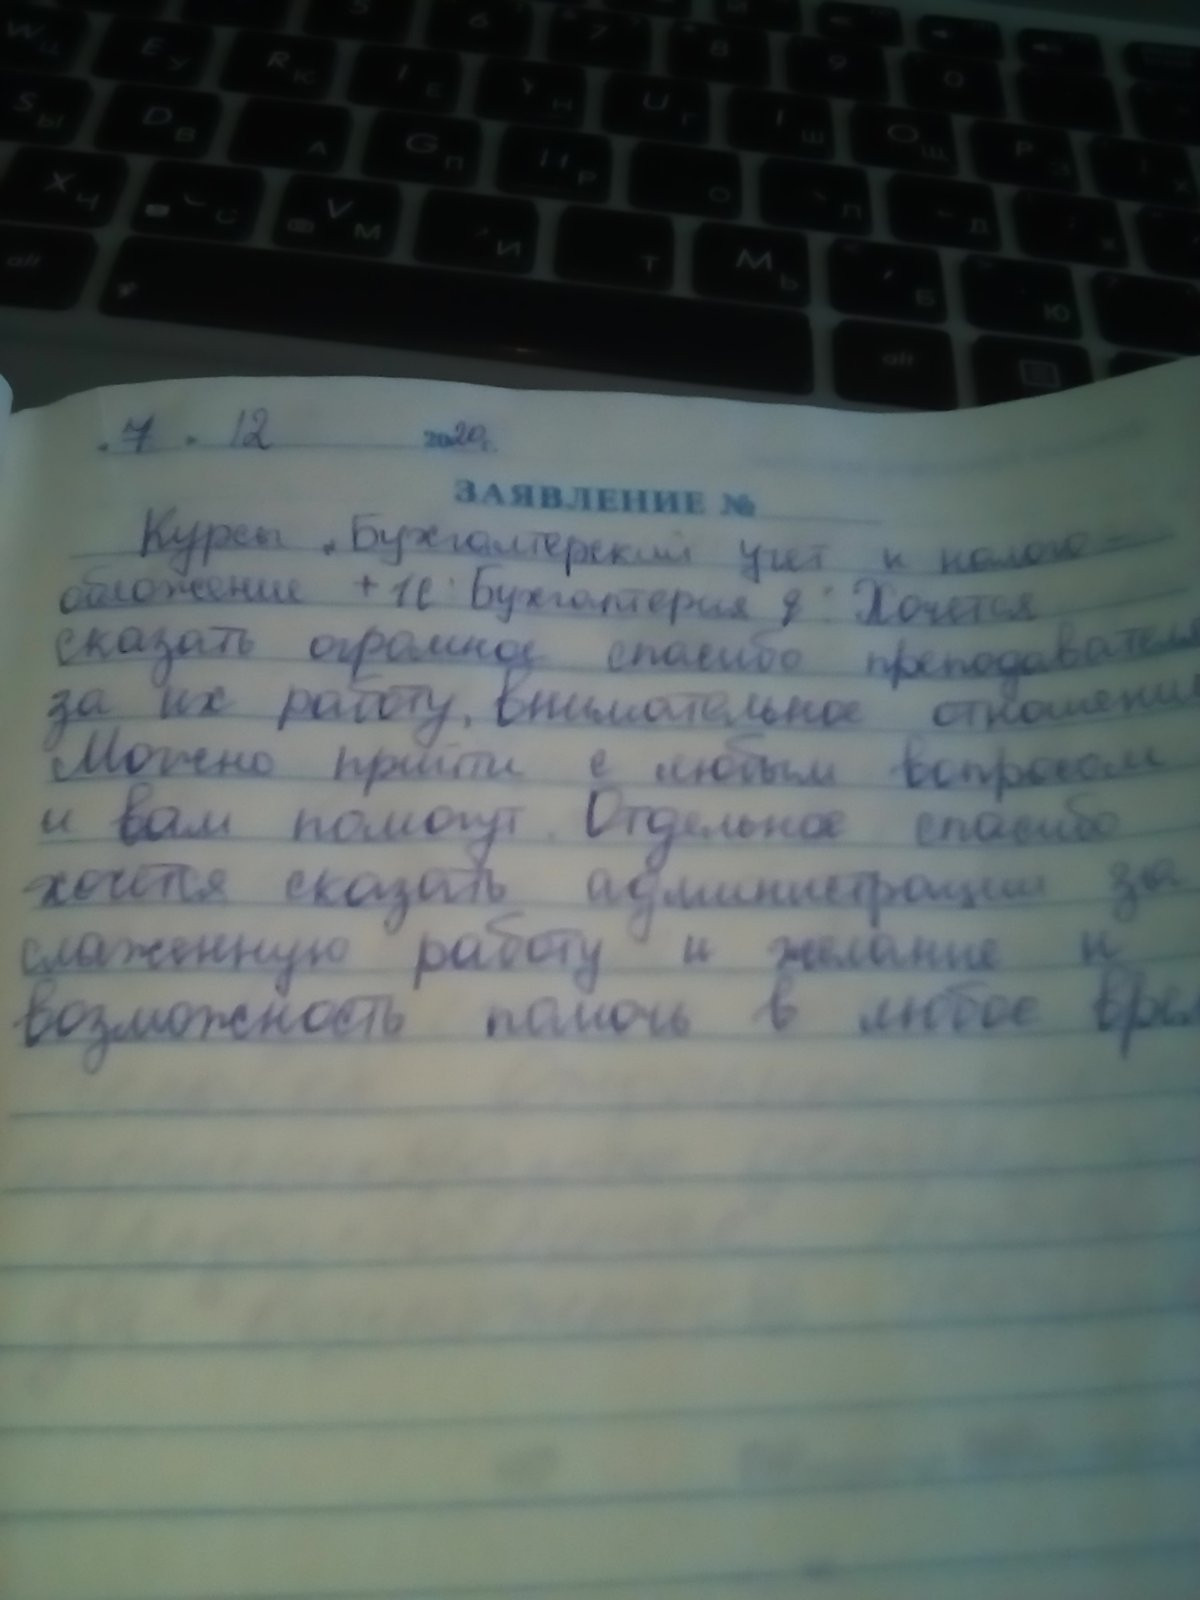 W Ц E У R К I Е Y Н U Г I Ш O Щ P З
S Ы D В А G П H Р О Л Д Ж
X Ч С V М И Т M Ь Б Ю
alt alt
7. 12 2020г.
ЗАЯВЛЕНИЕ №
Курсы „Бухгалтерский учет и налого-
обложение + 1С: Бухгалтерия 8" Хочется
сказать огромное спасибо преподавателя
за их работу, внимательное отношение
Можно прийти с любым вопросом
и вам помогут. Отдельное спасибо
хочется сказать администрации за
слаженную работу и желание и
возможность помочь в любое врем